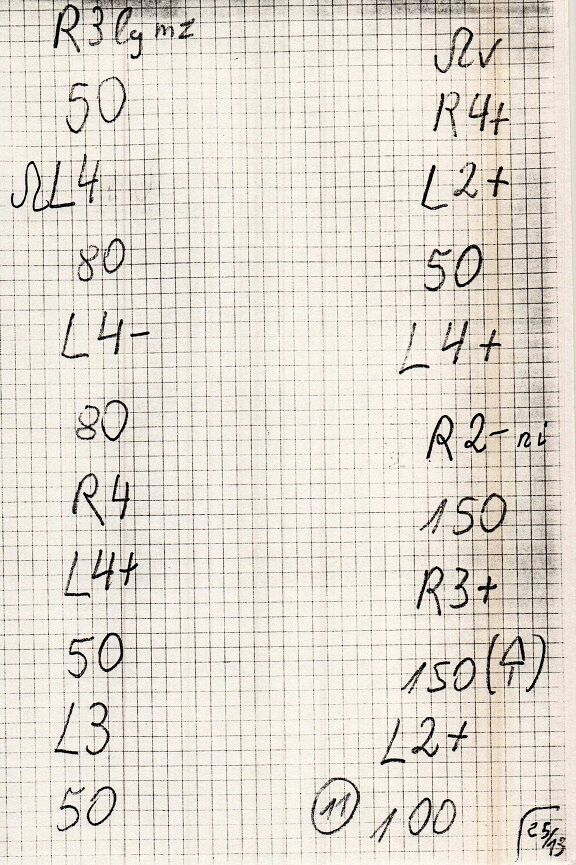 R3 lg mz
50
ΩL4
80
L4-
80
R4
L4+
50
L3
50
Ωv
R4+
L2+
50
L4+
R2- ni
150
R3+
150 (
L2+
11 100
25/13